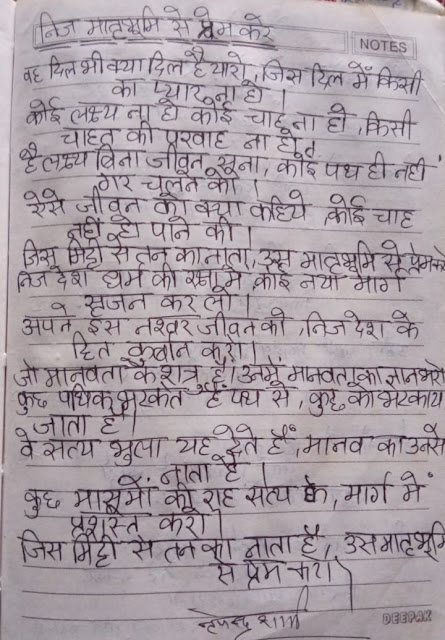 निज मातृभूमि से प्रेम करें
NOTES
वह दिल भी क्या दिल है यारो, जिस दिल में किसी
का प्यार ना हो।
कोई लक्ष्य ना हो कोई चाह ना हो, किसी
चाहत की परवाह ना हो।
है लक्ष्य बिना जीवन सूना, कोई पथ ही नहीं
गर चलने को।
ऐसे जीवन को क्या कहिये, कोई चाह
नहीं हो पाने की।
जिस मिट्टी से तन का नाता, उस मातृभूमि से प्रेम करो
निज देश धर्म की रक्षा में, कोई नया मार्ग
सृजन कर लो।
अपने इस नश्वर जीवन को, निज देश के
हित कुर्बान करो।
जो मानवता के शत्रु है। उनमें मानवता का ज्ञान भरो
कुछ पथिक भटकते हैं पथ से, कुछ को भटकाया
जाता है।
वे सत्य भुला यह देते हैं, मानव का उनसे
नाता है।
कुछ मासूमों की राह सत्य के, मार्ग में
प्रशस्त करो।
जिस मिट्टी से तन का नाता है, उस मातृभूमि
से प्रेम करो।
शर्मा
DEEPAK